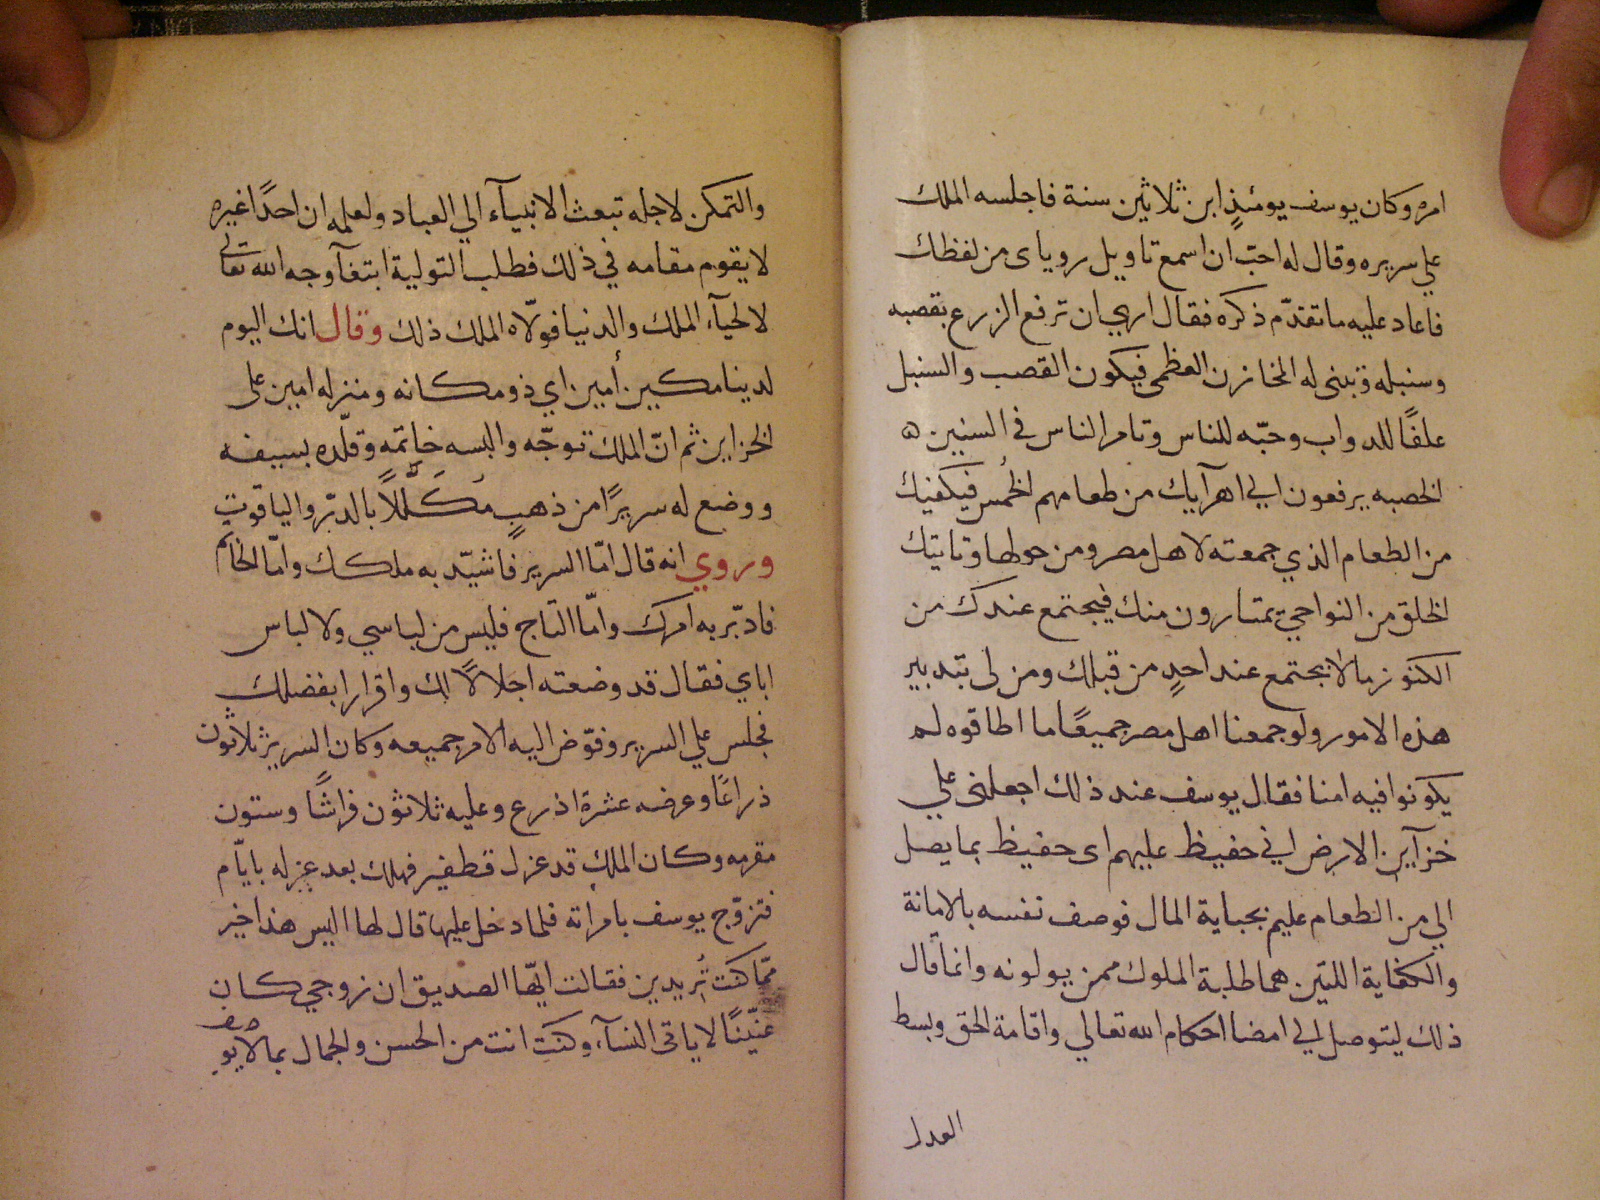 امره وكان يوسف يومئذٍ ابن ثلاثين سنة فاجلسه الملك
علي سريره وقال له احبّ ان اسمع تاويل روياى من لفظك
فاعاد عليه ما تقدّم ذكره فقال ارى ان ترفع الزرع بقصبه
وسنبله وتبنى له المخازن العظمى فيكون القصب والسنبل
علفًا للدواب وحبّه للناس وتامر الناس فى السنين ه
الخصبه يرفعون الي اهرآيك من طعامهم الخُمس فيكفيك
من الطعام الذي جمعته لاهل مصر ومن حولها وتاتيك
الخلق من النواحي يمتارون منك فيجتمع عندك من
الكنوز ما لا يجتمع عند احدٍ من قبلك ومن لى بتدبير
هذه الامور ولو جمعنا اهل مصر جميعًا ما اطاقوه لم
يكونوا فيه امنا فقال يوسف عند ذلك اجعلنى علي
خزآين الارض اني حفيظ عليهم اى حفيظ بما يصل
الي من الطعام عليم بجباية المال فوصف نفسه بالامانة
والكفاية اللتين هما طلبة الملوك ممن يولونه وانما قال
ذلك ليتوصل الي امضا احكام الله تعالي واقامة الحق وبسط
العدل
والتمكن لاجله تبعث الانبيآء الي العباد ولعلمه ان احدًا غيره
لا يقوم مقامه في ذلك فطلب التولية ابتغآ وجه الله تعالى
لا لحيآء الملك والدنيا فولّاه الملك ذلك وقال انك اليوم
لدينا مكين أمين اي ذو مكانه ومنزله امين على
الخزاين ثم انّ الملك توجّه والبسه خاتمه وقلّده بسيفه
ووضع له سريرًا من ذهبٍ مكَلَّلاً بالدرّ والياقوت
وروي انه قال امّا السرير فاشيّد به ملكك وامّا الخاتم
فادبّر به امرك وامّا التاج فليس من لباسي ولا لباس
اباي فقال قد وضعته اجلالاً لك واقرارا بفضلك
فجلس علي السرير وفوّض اليه الامر جميعه وكان السرير ثلاثون
ذراعًا وعرضه عشرة اذرع وعليه ثلاثون فراشًا وستون
مقرمه وكان الملك قد عزل قطفير فهلك بعد عزله بايّام
فتزوّج يوسف بامراته فلما دخل عليها قال لها اليس هذا خير
ممّا كنت تُريدين فقالت ايّها الصديق ان زوجي كان
عنّينًا لا ياتى النسآء وكنت انت من الحسن والجمال بما لا يوصف